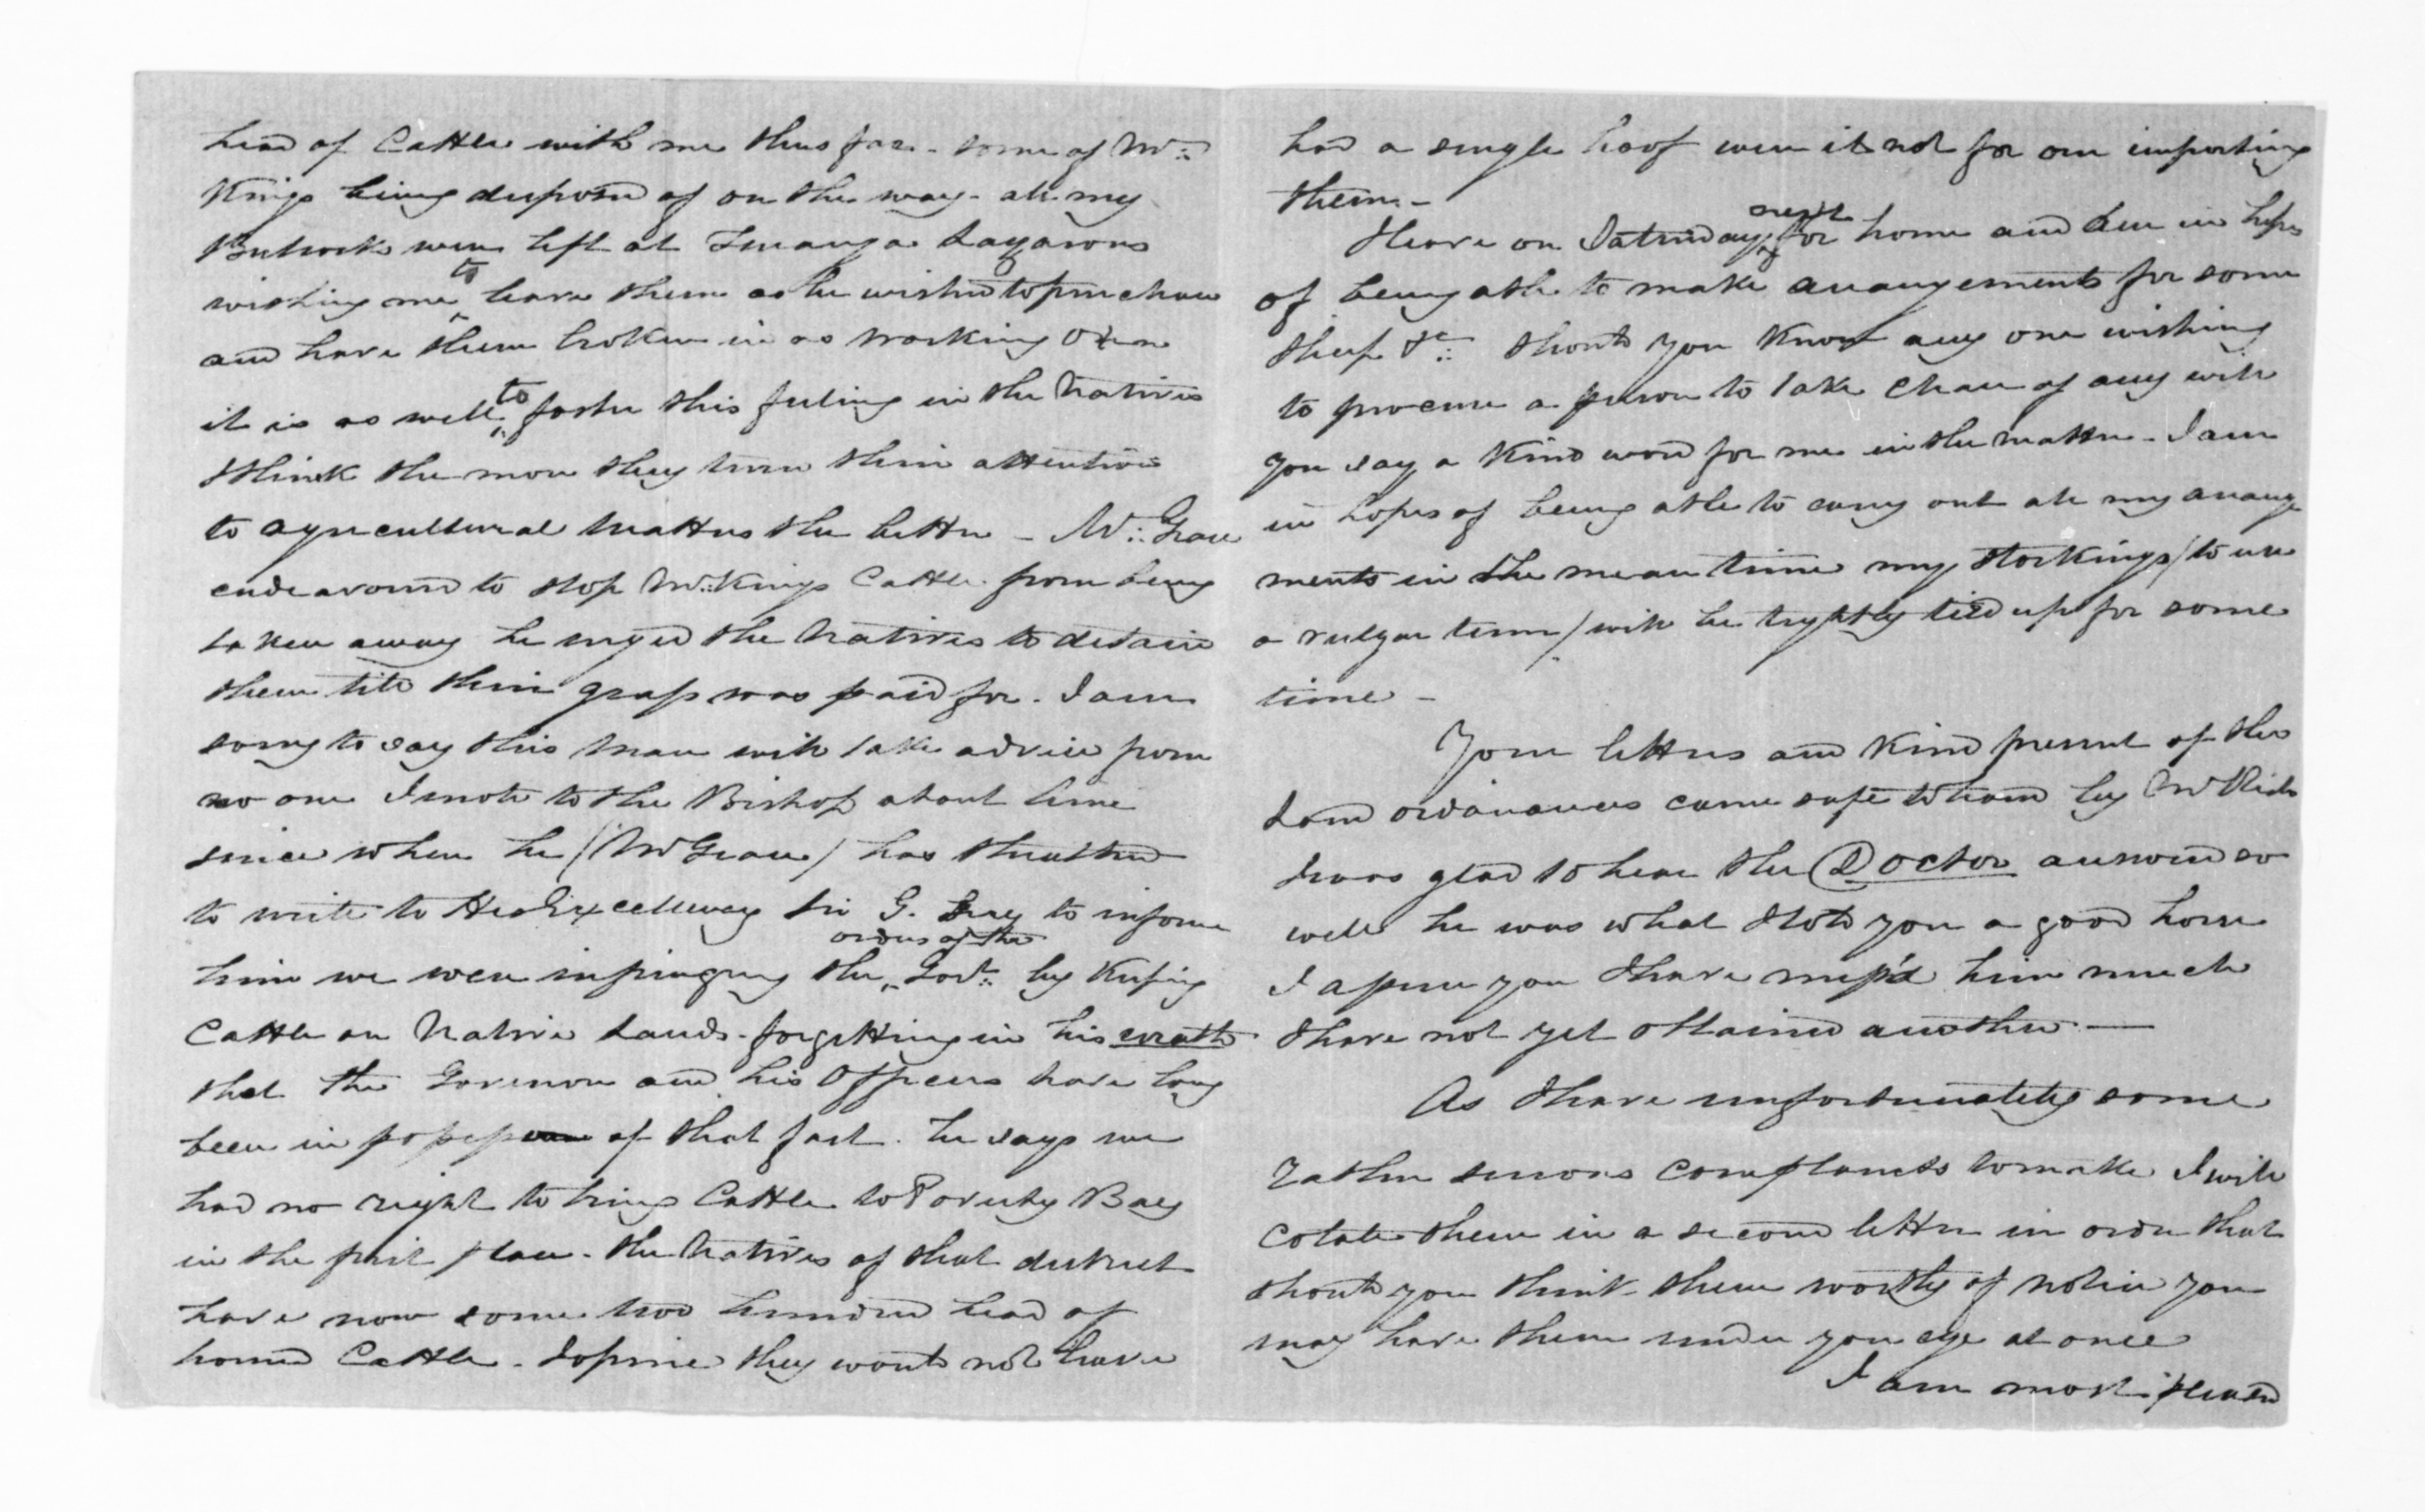 head of Cattle with me thus far - some of Mr
Kings being disposed of on the way - all my
Bullocks were left at Turanga Lazarous
wishing me to leave them as he wished to purchase
and have them broken in as working Oxen
it is as well to foster this feeling in the Natives
I think the more they turn their attention
to agricultural matters the better - Mr Grace
endeavoured to stop Mr Kings Cattle from being
taken away he urged the Natives to detain
them till their grass was paid for. I am
sorry to say this man will take advice from
no one I wrote to the Bishop about time
since when he (Mr Grace) has threatened
to write to His Excellency Sir G. Grey to inform
him we were infringing the orders of the Govt by keeping
Cattle on Native Lands - forgetting in his wrath
that the Governor and his Officers have long
been in possession of that fact. he says we
had no right to bring Cattle to Poverty Bay
in the first place - the Natives of that district
have now some two hundred head of
horned Cattle - I opine they would not have
had a single hoof were it not for our importing
them -
I leave on Saturday next for home and am in hopes
of being able to make arrangements for some
sheep &c should you know any one wishing
to procure a person to take charge of any will
you say a kind word for me in the matter - I am
in hopes of being able to carry out all my arrange
ments in the mean time my stockings (to use
a vulgar term) will be tightly tied up for some
time -
Your letters and kind present of the
Land ordinances came safe to hand by Mr
I was glad to hear the Doctor answered so
well he was what I told you a good horse
I assure you I have miss'd him much
I have not yet obtained another -
As I have unfortunately some
rather serious complaints to make I will
them in a second letter in order that
should you think them worthy of notice you
may have them under you eye at once
I am most